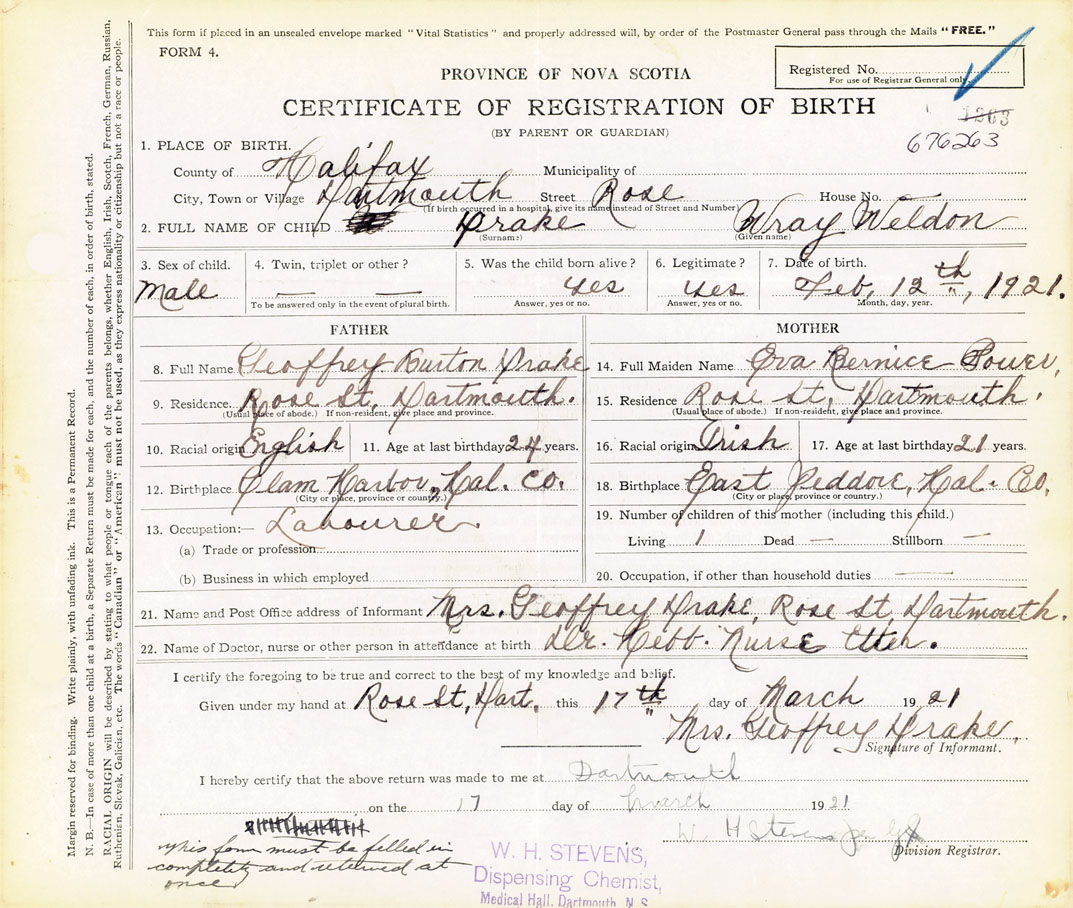 This form if placed in an unsealed envelope marked "Vital Statistics" and properly addressed will, by order of the Postmaster General pass through the Mails "FREE."
FORM 4.
Registered No.
For use of Registrar General only.
PROVINCE OF NOVA SCOTIA
CERTIFICATE OF REGISTRATION OF BIRTH
(BY PARENT OR GUARDIAN)
1363
676263
1. PLACE OF BIRTH.
County of Halifax Municipality of
City, Town or Village Dartmouth Street Rose House No.
(If birth occurred in a hospital, give its name instead of Street and Number)
2. FULL NAME OF CHILD Drake Wray Weldon
(Surname) (Given name)
3. Sex of child. Male
4. Twin, triplet or other? — —
To be answered only in the event of plural birth.
5. Was the child born alive? Yes
Answer, yes or no.
6. Legitimate? Yes
Answer, yes or no.
7. Date of birth. Feb, 12th, 1921.
Month, day, year.
FATHER
8. Full Name Geoffrey Burton Drake
9. Residence. Rose St, Dartmouth.
(Usual place of abode.) If non-resident, give place and province.
10. Racial origin English 11. Age at last birthday 24 years.
12. Birthplace Clam Harbor, Hal. Co.
(City or place, province or country.)
13. Occupation:— Labourer.
(a) Trade or profession
(b) Business in which employed
MOTHER
14. Full Maiden Name Eva Bernice Power,
15. Residence Rose St, Dartmouth.
(Usual place of abode.) If non-resident, give place and province.
16. Racial origin Irish 17. Age at last birthday 21 years.
18. Birthplace East Jeddore, Hal. Co.
(City or place, province or country.)
19. Number of children of this mother (including this child.)
Living 1 Dead — Stillborn —
20. Occupation, if other than household duties —
21. Name and Post Office address of Informant Mrs. Geoffrey Drake, Rose St, Dartmouth.
22. Name of Doctor, nurse or other person in attendance at birth Dr. Hebb. Nurse Etter.
I certify the foregoing to be true and correct to the best of my knowledge and belief.
Given under my hand at Rose St, Dart, this 17th day of March 1921
Mrs. Geoffrey Drake,
Signature of Informant.
I hereby certify that the above return was made to me at Dartmouth
on the 17 day of March 1921
W H Stevens
Division Registrar.
This form must be filled in
completely and returned at
once
W. H. STEVENS,
Dispensing Chemist,
Medical Hall, Dartmouth, N.S.
Margin reserved for binding. Write plainly, with unfading ink. This is a Permanent Record.
N. B.—In case of more than one child at a birth, a Separate Return must be made for each, and the number of each, in order of birth, stated.
RACIAL ORIGIN will be described by stating to what people or tongue each of the parents belongs, whether English, Irish, Scotch, French, German, Russian,
Ruthenian, Slovak, Galician, etc. The words "Canadian" or "American" must not be used, as they express nationality or citizenship but not a race or people.